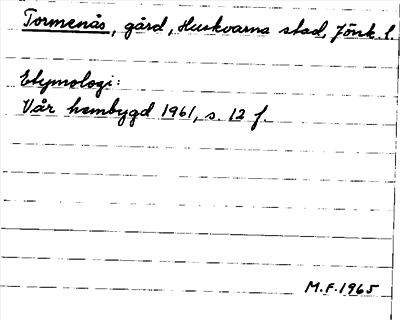 Tormenås, gård, Huskvarna stad, Jönk. l.
Etymologi:
Vår hembygd 1961, s. 12 f.
M.F. 1965